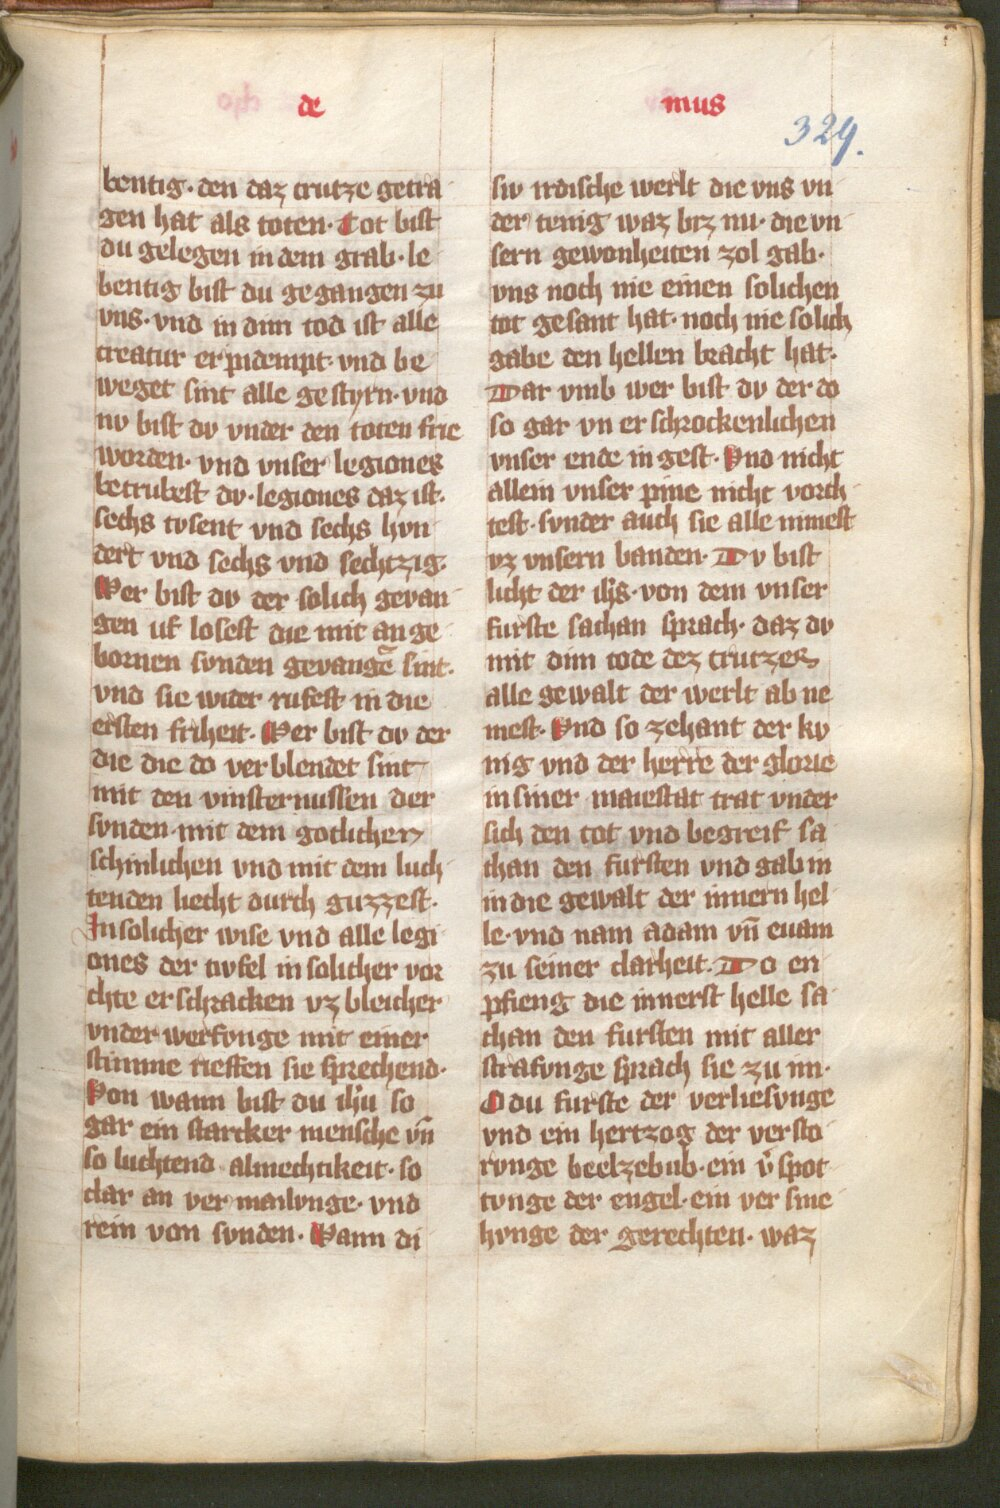 de
mus
329.
bentig · den daz crutze getra
gen hat als toten · Tot bist
du gelegen in dem grab · le
bentig bist du gegangen zu
vns · vnd in dinn tod ist alle
creatur erpidempt · vnd be
weget sint alle gestyrn · vnd
nv bist dv vnder den toten frie
worden · vnd vnser legiones
betrubest dv · legiones daz ist ·
sechs tvsent vnd sechs hvn
dert vnd sechs vnd sechtzig ·
Wer bist dv der solich gevan
gen uf losest die mit an ge
bornen svnden gevangē sint ·
vnd sie wider rufest in die
ersten friheit · Wer bist dv der
die die do verblendet sint
mit den vinsternussen der
svnden · mit dem gotlichen
schinlichen vnd mit dem luch
tenden liecht durch guzzest ·
In solicher wise vnd alle legi
ones der tivfel in solicher vor
chte erschracken vz bleicher
vnder werfvnge mit einer
stimme rieffen sie sprechend ·
Von wann bist du ihū so
gar ein starcker mensche vn̄
so luchtend almechtikeit · so
clar an vermailvnge · vnd
rein von svnden · Wann di
siv irdische werlt die vns vn
der tenig waz biz nu · die vn
sern gewonheiten zol gab ·
vns noch nie einen solichen
tot gesant hat · noch nie solich
gabe den hellen bracht hat ·
Dar vmb wer bist dv der do
so gar vnerschrockenlichen
vnser ende in gest · Vnd nicht
allein vnser pine nicht vorch
test · svnder auch sie alle nimest
vz vnsern banden · Dv bist
licht der ihs · von dem vnser
furste sathan sprach · daz dv
mit dinn tode dez crutzes
alle gewalt der werlt ab ne
mest · Vnd so zehant der kv
nig vnd der herre der glorie
in siner maiestat trat vnder
sich den tot vnd begreif sa
than den fursten vnd gab in
in die gewalt der innern hel
le · vnd nam adam vn̄ euam
zu seiner clarheit · Do en
pfieng die innerst helle sa
than den fursten mit aller
strafvnge sprach sie zu im ·
O du furste der verliesvnge
vnd ein hertzog der versto
rvnge beelzebub · ein v̊spot
tvnge der engel · ein versme
hvnge der gerechten · waz